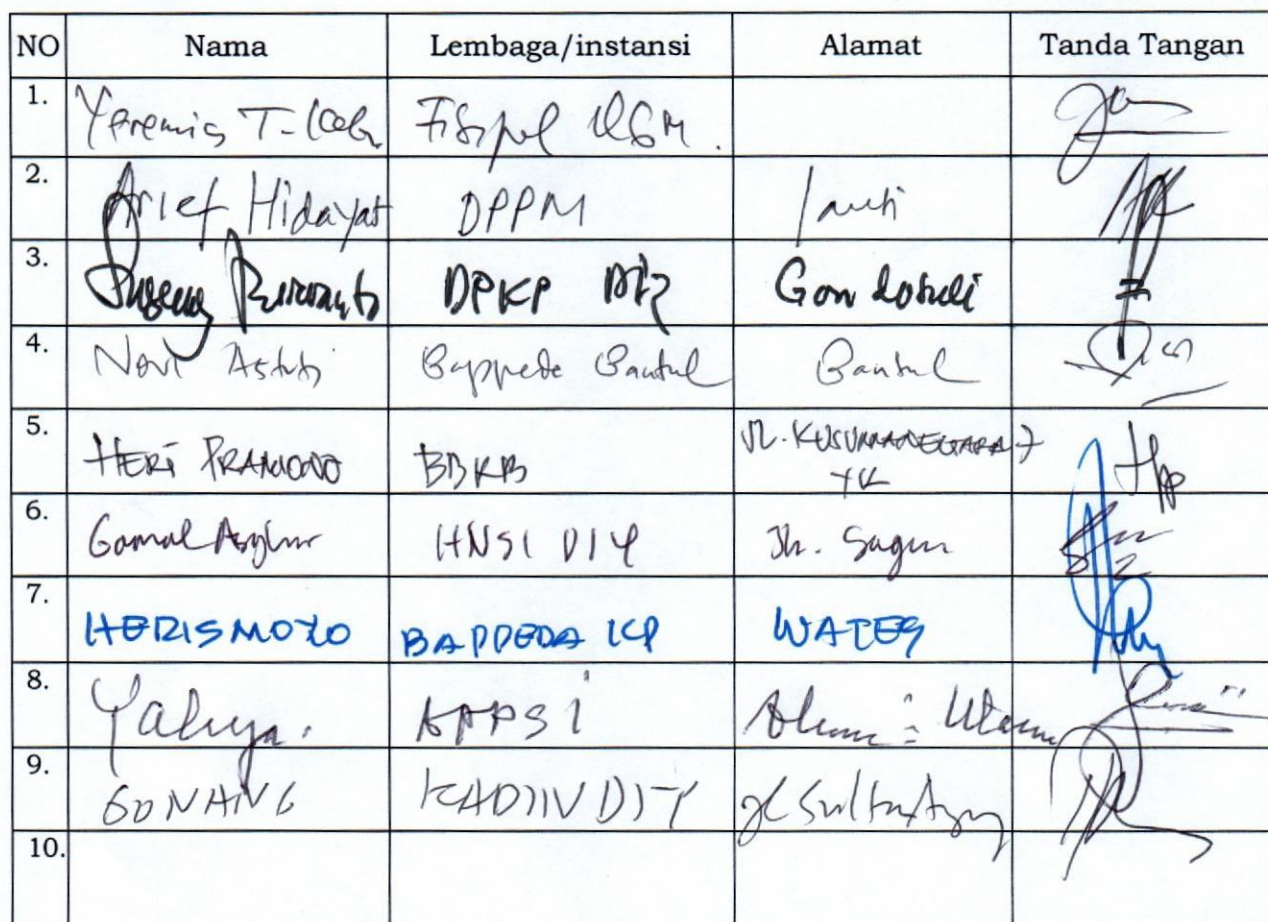 NO Nama Lembaga/instansi Alamat Tanda Tangan
1. Yeremias T. Fisipol UGM.
2. Arief Hidayat DPPM
3. Sugeng Purwanto DPKP DIY Gondosuli
4. Novi Astuti Bappeda Bantul Bantul
5. HERI PRAMONO BBKB JL. KUSUMANEGARA 7
YK
6. Gamal HNSI DIY Jln.
7. HERISMOYO BAPPEDA KP WATES
8. Yahya. APPSI Alun-Utara
9. GONANG KADIN DIY Jl Sultan Agung
10.